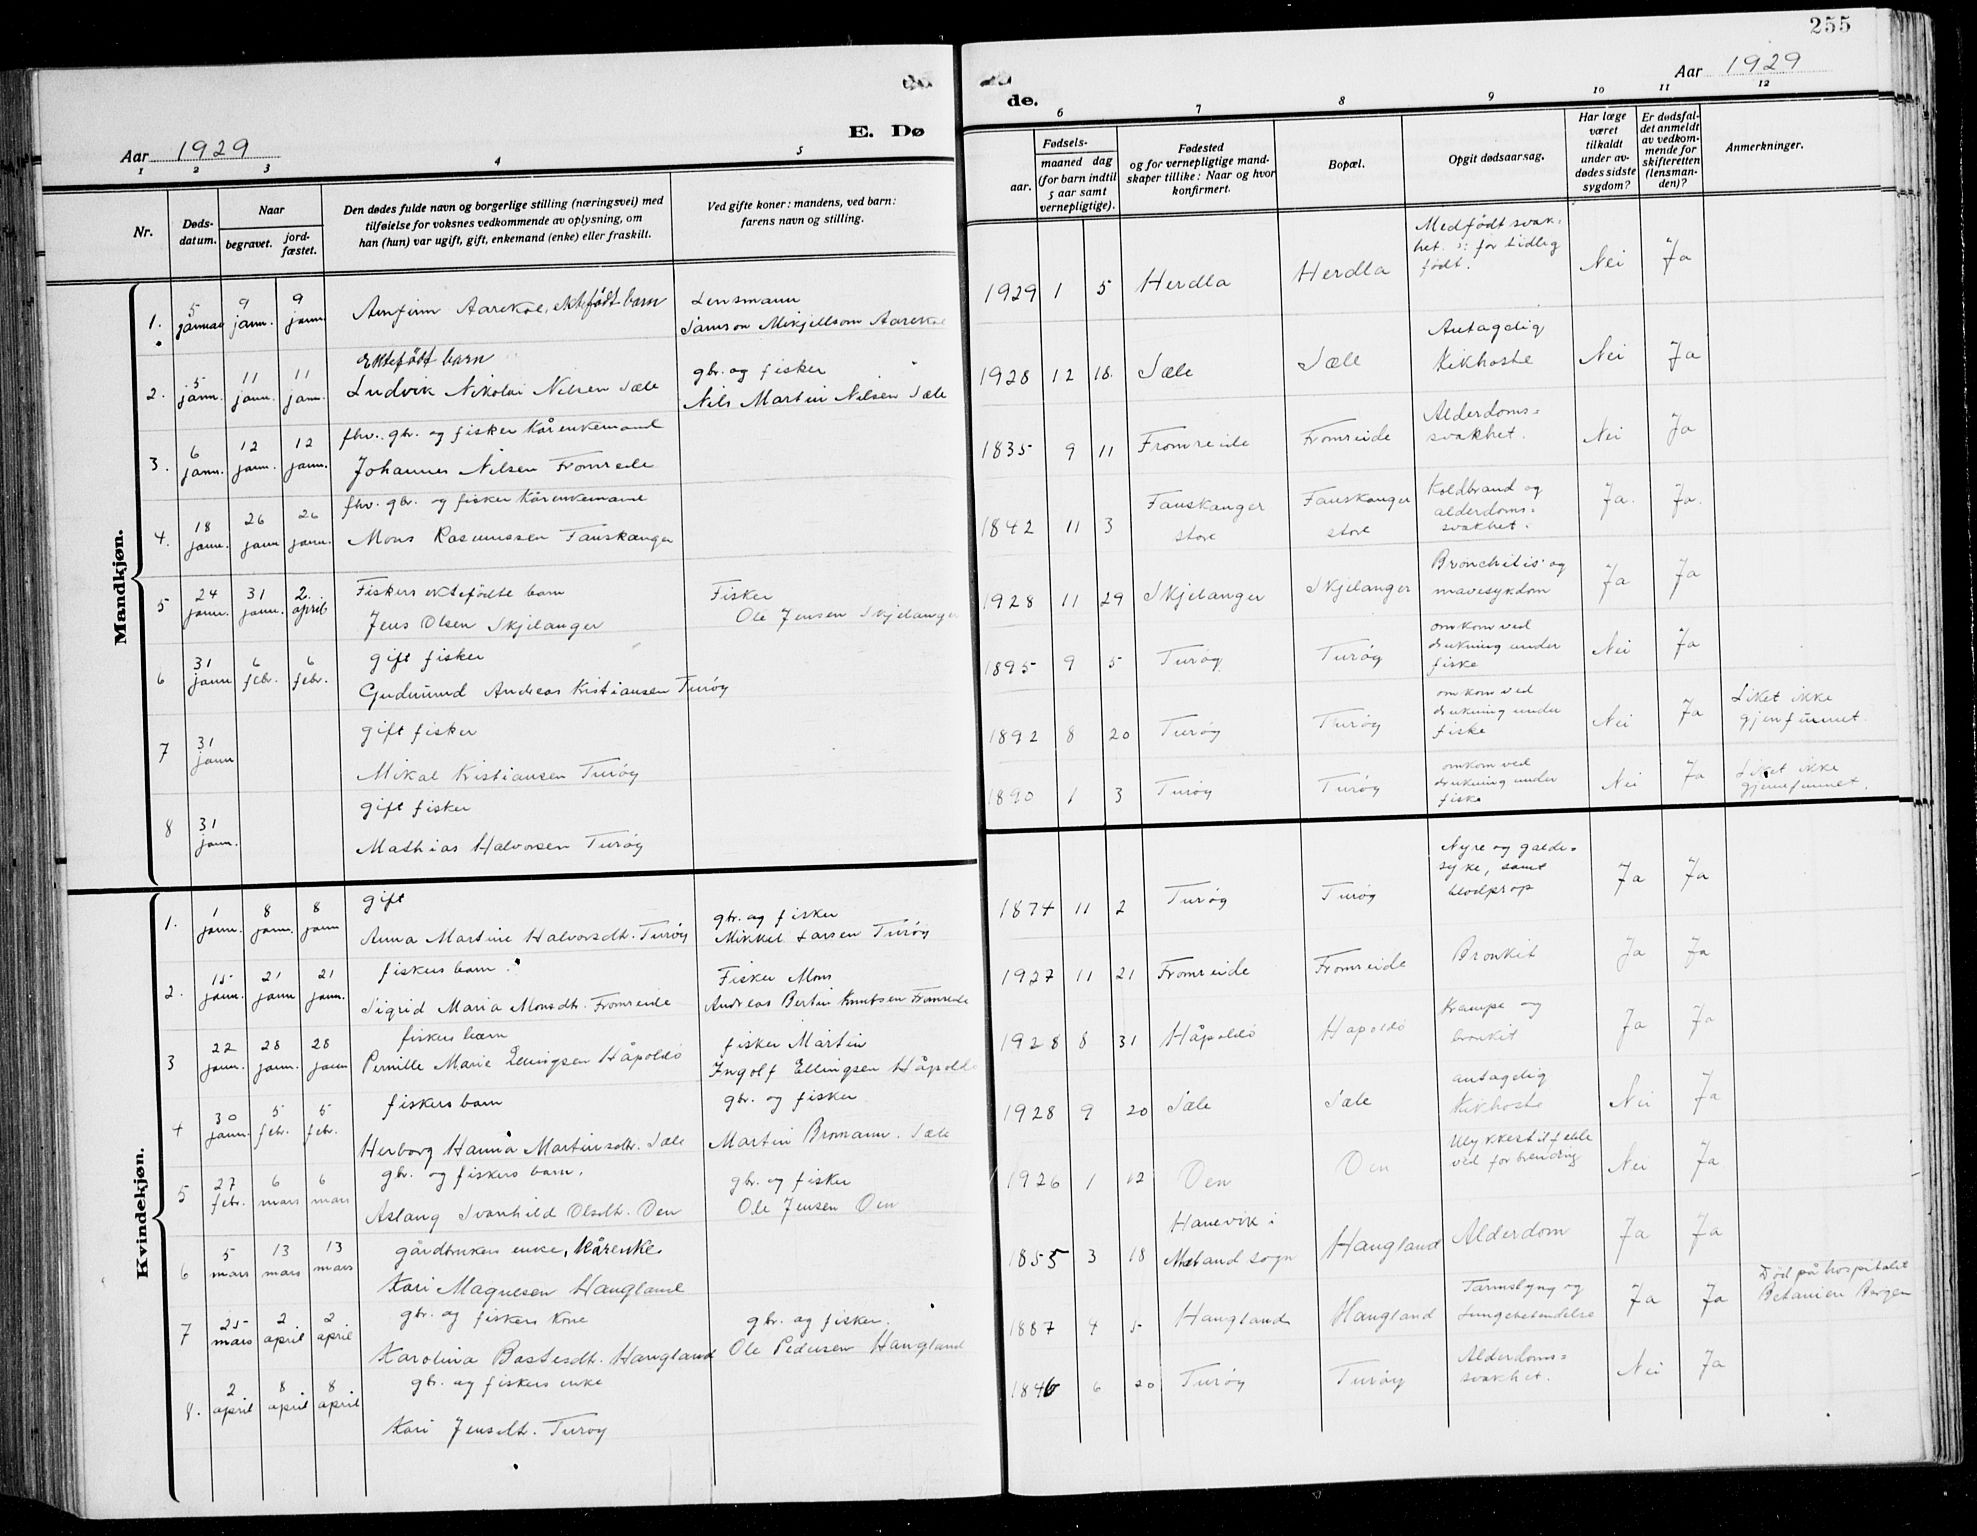 255
Aar 1929
E. Dø
de.
Aar 1929
1 2 3 4 5
6 7 8 9 10 11 12
Nr.
Døds-
datum.
Naar
begravet.
jord-
fæstet.
Den dødes fulde navn og borgerlige stilling (næringsvei) med
tilføielse for voksnes vedkommende av oplysning, om
han (hun) var ugift, gift, enkemand (enke) eller fraskilt.
Ved gifte koner: mandens, ved barn:
farens navn og stilling.
Fødsels-
aar.
maaned dag
(for barn indtil
5 aar samt
vernepligtige).
Fødested
og for vernepligtige mand-
skaper tillike: Naar og hvor
konfirmert.
Bopæl.
Opgit dødsaarsag.
Har læge
været
tilkaldt
under av-
dødes sidste
sygdom?
Er dødsfal-
det anmeldt
av vedkom-
mende for
skifteretten
(lensman-
den)?
Anmerkninger.
Mandkjøn.
1. 5 januar 9 jann. 9 jann.
Arnfinn Aarekol, ektefødt barn
Lensmann
Samson Mikjellsom Aarekol
1929 1 5 Herdla Herdla
Medfødt svak-
het. ɔ: for tidlig
født.
Nei Ja
2. 5 jann. 11 jann. 11 jann.
Ektefødt barn
Ludvik Nikolai Nilsen Sæle
gbr. og fisker
Nils Martin Nilsen Sæle
1928 12 18. Sæle Sæle
Antagelig
Kikhoste
Nei Ja
3. 6 jann. 12 jann. 12 jann.
fhv. gbr. og fisker Kårenkemand
Johannes Nilsen Fromreide
1835 9 11 Fromreide Fromreide
Alderdoms=
svakhet.
Nei Ja
4. 18 jann. 26 jann 26 jann.
fhv. gbr. og fisker Kårenkemand
Mons Rasmussen Fauskanger
1842 11 3
Fauskanger
store
Fauskanger
store
Koldbrand og
alderdoms=
svakhet.
Ja. Ja.
5 24 jann. 31 jann. 2. april
Fiskers ektefødte barn
Jens Olsen Skjelanger
Fisker
Ole Jensen Skjelanger
1928 11 29 Skjelanger Skjelanger
Bronchitis og
mavesykdom
Ja Ja
6 31 jann 6 febr. 6 febr.
gift fisker
Gudmund Andreas Kristiansen Turøy
1895 9 5 Turøy Turøy
omkom ved
drukning under
fiske
Nei Ja
7 31 jann
gift fisker
Mikal Kristiansen Turøy
1892 8 20 Turøy Turøy
omkom ved
drukning under
fiske
Nei Ja
Liket ikke
gjenfunnet.
8 31 jann.
gift fisker
Mathias Halvorsen Turøy
1890 1 3 Turøy Turøy
omkom ved
drukning under
fiske
Nei Ja
Liket ikke
gjenfunnet.
Kvindekjøn.
1. 1 jann. 8 jann. 8 jann
gift
Anna Martine Halvorsdtr. Turøy
gbr. og fisker
Mikkel Larsen Turøy
1874 11 2 Turøy Turøy
Nyre og galde=
syke, samt
blodprop
Ja Ja
2. 15 jann. 21 jann 21 jann.
fiskers barn.
Sigrid Maria Monsdtr. Fromreide
Fisker Mons
Andreas Bertin Knutsen Fromreide
1927 11 21 Fromreide Fromreide Bronkit Ja Ja
3 22 jann. 28 jann. 28 jann
fiskers barn
Pernille Marie Ellingsen Håpoldø
fisker Martin
Ingolf Ellingsen Håpoldø
1928 8 31 Håpoldø Håpoldø
Krampe og
bronkit
Ja Ja
4 30 jann. 5 febr. 5 febr.
fiskers barn
Herborg Hanna Martinsdtr. Sæle
gbr. og fisker
Martin Bromann. Sæle
1928 9 20 Sæle Sæle
antagelig
Kikhoste
Nei Ja
5 27 febr. 6 mars 6 mars
gbr. og fiskers barn.
Aslaug Svanhild Olsdtr. Oen
gbr. og fisker
Ole Jensen Oen
1926 1 12 Oen Oen
Ulykkestilfelle
ved forbrending
Nei Ja
6 5 mars 13 mars 13 mars
gårdbrukers enke, Kårenke.
Kari Magnesen Haugland
1855 3 18
Hanevik i
Mæland sogn
Haugland Alderdom Ja Ja
7 25 mars 2 april 2 april
gbr. og fiskers kone
Karolina Bastesdtr. Haugland
gbr. og fisker.
Ole Pedersen Haugland
1887 4 5 Haugland Haugland
Tarmslyng og
lungebetendelse
Ja Ja
Død på hospitalet
Betanien Bergen
8. 2 april 8 april 8 april
gbr. og fiskers enke
Kari Jensdtr. Turøy
1846 6 20 Turøy Turøy
Alderdoms=
svakhet.
Nei Ja